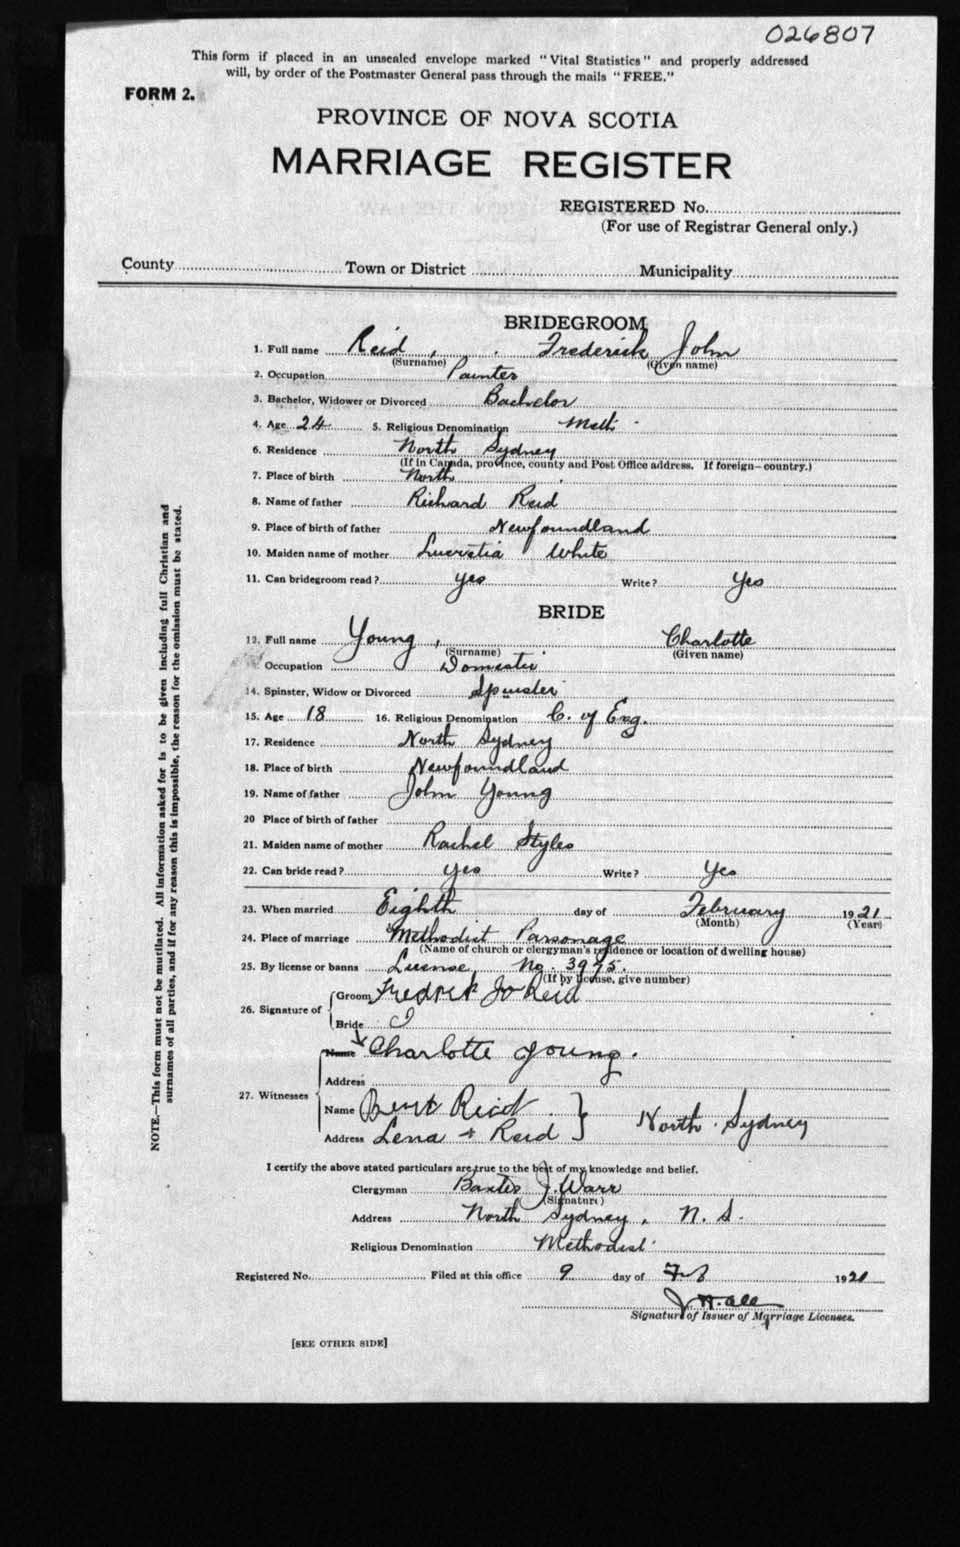 026807
This form if placed in an unsealed envelope marked "Vital Statistics" and properly addressed
will, by order of the Postmaster General pass through the mails "FREE."
FORM 2.
PROVINCE OF NOVA SCOTIA
MARRIAGE REGISTER
REGISTERED No.
(For use of Registrar General only.)
County Town or District Municipality
BRIDEGROOM
1. Full name Reid, Frederick John
(Surname) (Given name)
2. Occupation Painter
3. Bachelor, Widower or Divorced Bachelor
4. Age 24 5. Religious Denomination Meth.
6. Residence North Sydney
(If in Canada, province, county and Post Office address. If foreign—country.)
7. Place of birth North
8. Name of father Richard Reid
9. Place of birth of father Newfoundland
10. Maiden name of mother Lucretia White
11. Can bridegroom read? yes Write? Yes
BRIDE
12. Full name Young, Charlotte
(Surname) (Given name)
Occupation Domestic
14. Spinster, Widow or Divorced Spinster
15. Age 18 16. Religious Denomination C. of Eng.
17. Residence North Sydney
18. Place of birth Newfoundland
19. Name of father John Young
20 Place of birth of father
21. Maiden name of mother Rachel Styles
22. Can bride read? yes Write? Yes
23. When married Eighth day of February 1921
(Month) (Year)
24. Place of marriage Methodist Parsonage
(Name of church or clergyman's residence or location of dwelling house)
25. By license or banns License No. 3975.
(If by license, give number)
26. Signature of
Groom Fredrick Jo Reid
Bride
Name Charlotte young.
Address
27. Witnesses
Name Reid North Sydney
Address Lena Reid
I certify the above stated particulars are true to the best of my knowledge and belief.
Clergyman Baxter J. Warr
(Signature)
Address North Sydney, N. S.
Religious Denomination Methodist
Registered No. Filed at this office 9 day of Feb 1921
Signature of Issuer of Marriage Licenses.
[SEE OTHER SIDE]
NOTE.—This form must not be mutilated. All information asked for is to be given including full Christian and
surnames of all parties, and if for any reason this is impossible, the reason for the omission must be stated.